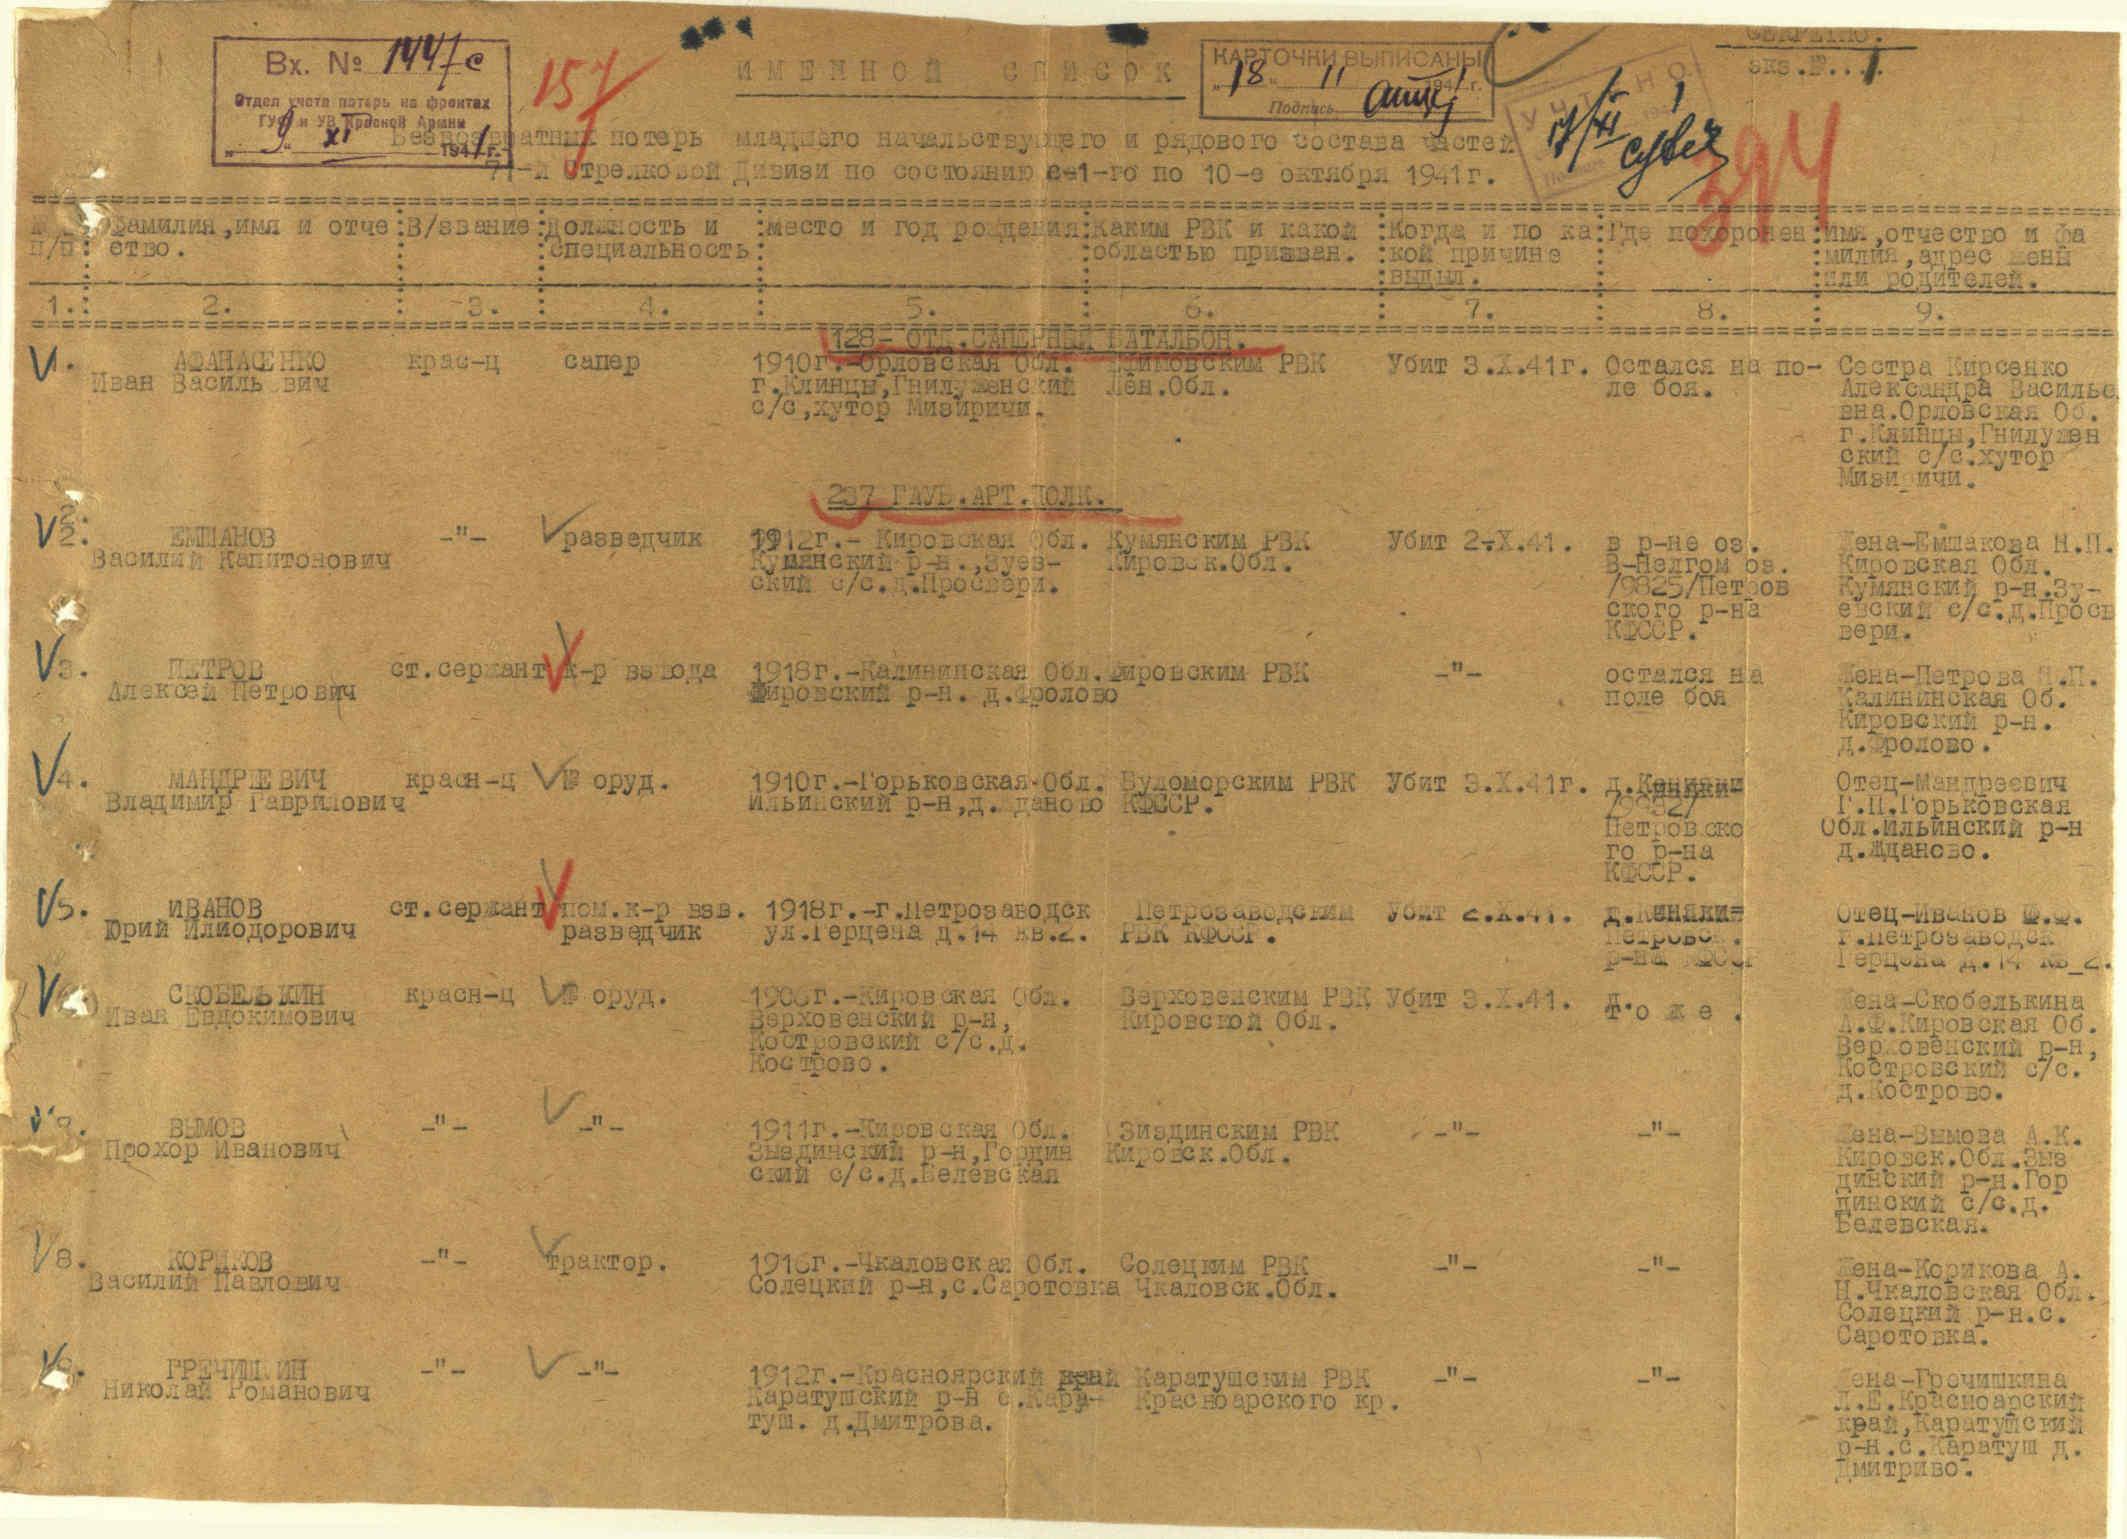 СЕКРЕТНО.
экз.№...1
Вх. № 1447с
Отдел учета потерь на фронтах
ГУФ и УВ Красной Армии
„9“ XI 1941г.
157
КАРТОЧКИ ВЫПИСАНЫ
„18“ 11 1941г.
Подпись
УЧТЕНО
17/XI
394
ИМЕННОЙ СПИСОК
Безвозвратных потерь младшего начальствующего и рядового состава частей
71-й Стрелковой Дивизи по состоянию с 1-го по 10-е октября 1941г.
п/п : Фамилия,имя и отче : В/звание : Должность и : место и год рождения : Каким РВК и какой : Когда и по ка : Где похоронен : Имя,отчество и фа
ство. специальность : областью призван. : кой причине милия,адрес жены
выдыл. или родителей.
1. : 2. : 3. : 4. : 5. : 6. : 7. : 8. : 9.
128- ОТД.САПЕРНЫЙ БАТАЛЬОН.
1. АФАНАСЕНКО крас-ц сапер 1910г.-Орловская Обл. Ефимовским РВК Убит 3.X.41г. Остался на по- Сестра Кирсенко
Иван Василь вич г.Клинцы,Гнилушенский Лен.Обл. ле боя. Александра Василье
с/с,хутор Мизиричи. вна.Орловская Об.
г.Клинцы,Гнилушен
ский с/с.хутор
Мизиричи.
237 ГАУБ.АРТ.ПОЛК.
2.
2. ЕМШАНОВ -"- разведчик 1912г.- Кировская Обл. Кумянским РВК Убит 2-X.41. в р-не оз. Жена-Емшакова Н.П.
Василий Капитонович Кумянский р-н.,Зуев- Кировск.Обл. В-Нелгом оз. Кировская Обл.
ский с/с.д.Просвери. /9825/Петров Кумянский р-н.Зу-
ского р-на евский с/с.д.Просв
КФССР. вери.
3. ПЕТРОВ ст.сержант к-р взвода 1918г.-Калининская Обл. Фировским РВК -"- остался на Жена-Петрова П.
Алексей Петрович Фировский р-н. д.Фролово поле боя Калининская Об.
Кировский р-н.
д.Фролово.
4. МАНДРЕЕВИЧ красн-ц № оруд. 1910г.-Горьковская Обл. Будоморским РВК Убит 3.X.41г. Отец-Мандреевич
Владимир Гаврилович Ильинский р-н,д.Жданово КФССР. Г.П.Горьковская
Петровско Обл.Ильинский р-н
го р-на д.Жданово.
КФССР.
5. ИВАНОВ ст.сержант пом.к-р взв. 1918г.-г.Петрозаводск Петрозаводским Убит 2.X.41. Отец-Иванов Ф.Ф.
Юрий Илиодорович разведчик ул.Герцена д.14 кв.2. РВК КФССР. Петровск. г.Петрозаводск
р-на КФССР Герцена д.14 кв_2.
СКОБЕЛЬКИН красн-ц № оруд. 1906г.-Кировская Обл. Верховенским РВК Убит 3.X.41. т о ж е . Жена-Скобелькина
Иван Евдокимович Верховенский р-н, Кировской Обл. А.Ф.Кировская Об.
Костровский с/с.д. Верховенский р-н,
Кострово. Костровский с/с.
д.Кострово.
ВЫМОВ -"- -"- 1911г.-Кировская Обл. Зиздинским РВК -"- -"- Жена-Вымова А.К.
Прохор Иванович Зыздинский р-н,Гордин Кировск.Обл. Кировск.Обл.Зыз
ский с/с.д.Белевская динский р-н.Гор
динский с/с.д.
Белевская.
8. КОРИКОВ -"- трактор. 1916г.-Чкаловская Обл. Солецким РВК -"- -"- Жена-Корикова А.
Василий Павлович Солецкий р-н,с.Саротовка Чкаловск.Обл. Н.Чкаловская Обл.
Солецкий р-н.с.
Саротовка.
ГРЕЧИШКИН -"- -"- 1912г.-Красноярский край Каратушским РВК -"- -"- Жена-Гречишкина
Николай Романович Каратушский р-н с.Кара- Красноарского кр. Л.Е.Красноарский
туш. д.Дмитрова. край,Каратушский
р-н.с.Каратуш д.
Дмитриво.